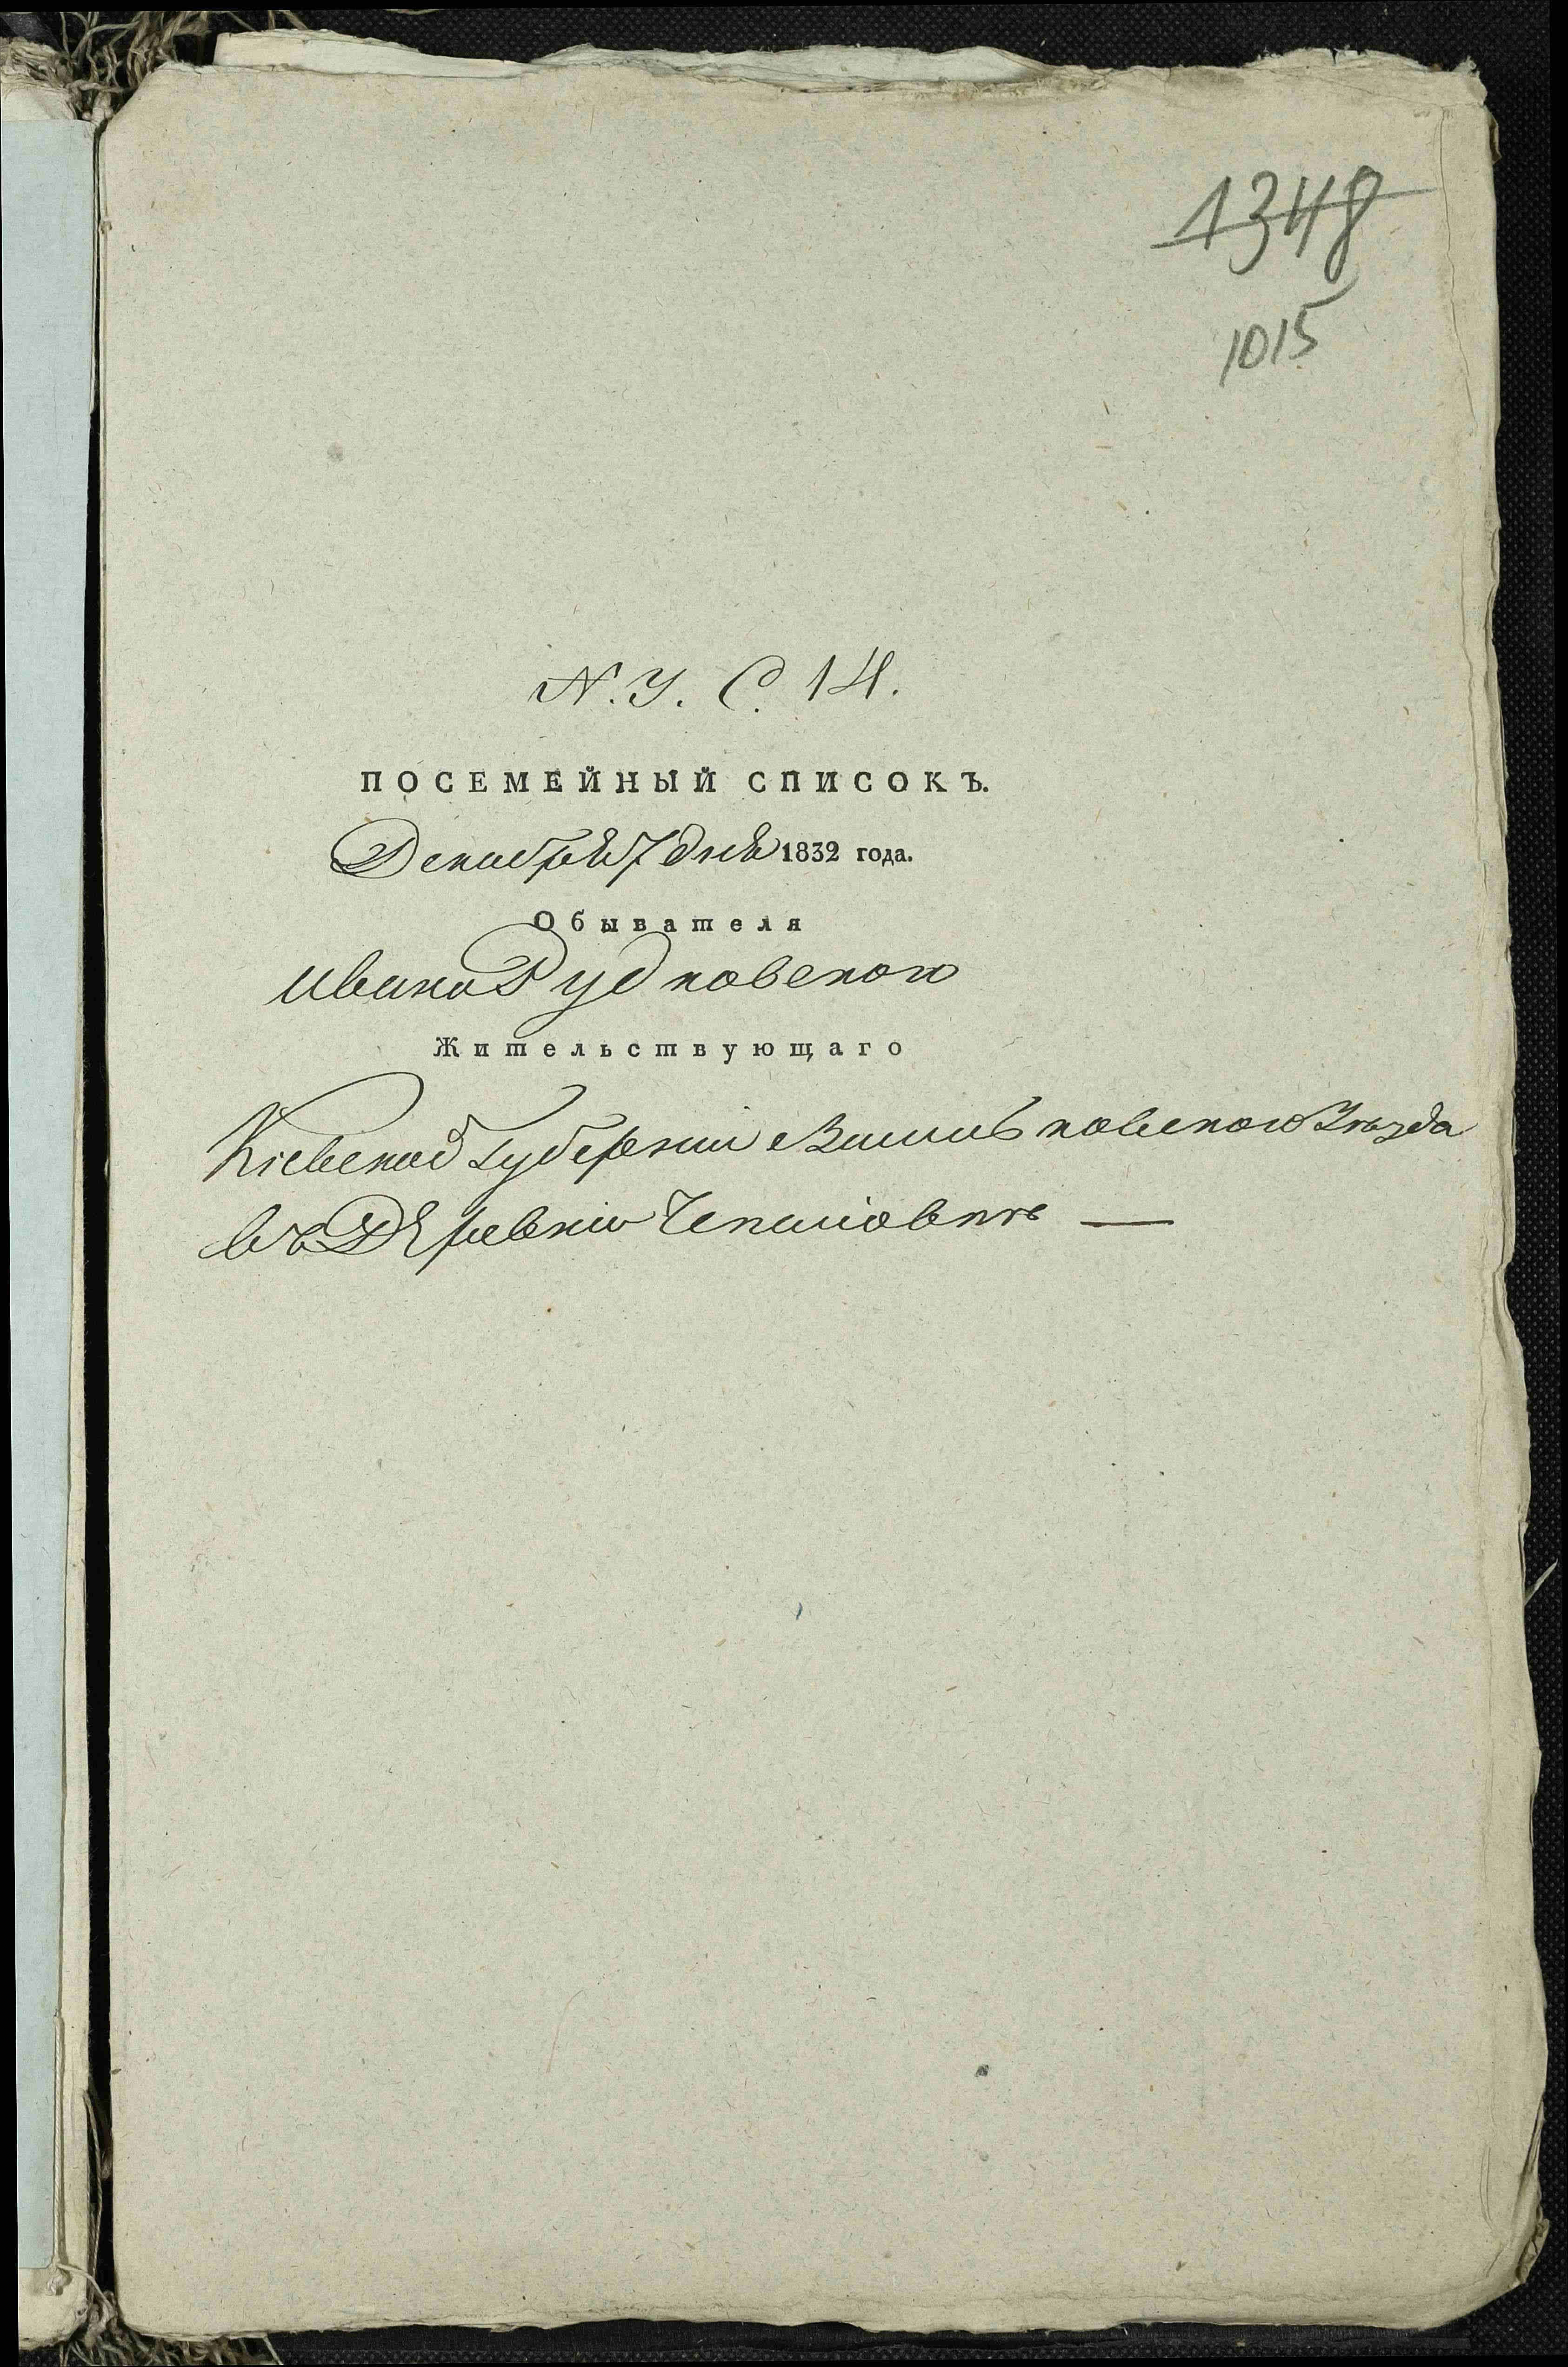 1348
1015
N. У. С. 14.
ПОСЕМЕЙНЫЙ СПИСОКЪ.
Декабря 7 дня 1832 года.
Обывателя
Ивана Рудковского
Жительствующаго
Кіевской Губерніи Васильковского Уѣзда
въ Деревнѣ